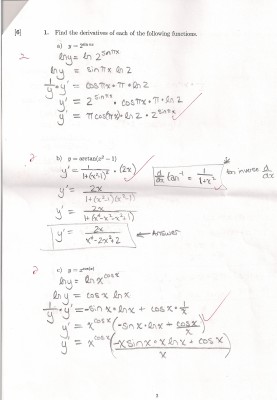 [6] 1. Find the derivatives of each of the following functions.
a) y = 2^sin πx
2
ln y = ln 2^sin πx
ln y = sin πx ln 2
1/y · y' = cos πx · π · ln 2
y' = 2^sin πx · cos πx · π · ln 2
y' = π cos(πx) · ln 2 · 2^sin πx
2
b) y = arctan(x² − 1)
y' = 1/(1+(x²-1)²) · (2x)
d/dx tan⁻¹ = 1/(1+x²)
tan inverse d/dx
y' = 2x/(1+(x²-1)(x²-1))
y' = 2x/(1+x⁴-x²-x²+1)
y' = 2x/(x⁴-2x²+2) ← Answer
2
c) y = x^cos(x)
ln y = ln x^cos x
ln y = cos x ln x
1/y · y' = -sin x · ln x + cos x · 1/x
y' = x^cos x (-sin x · ln x + cos x/x)
y' = x^cos x (-x sin x · x ln x + cos x/x)